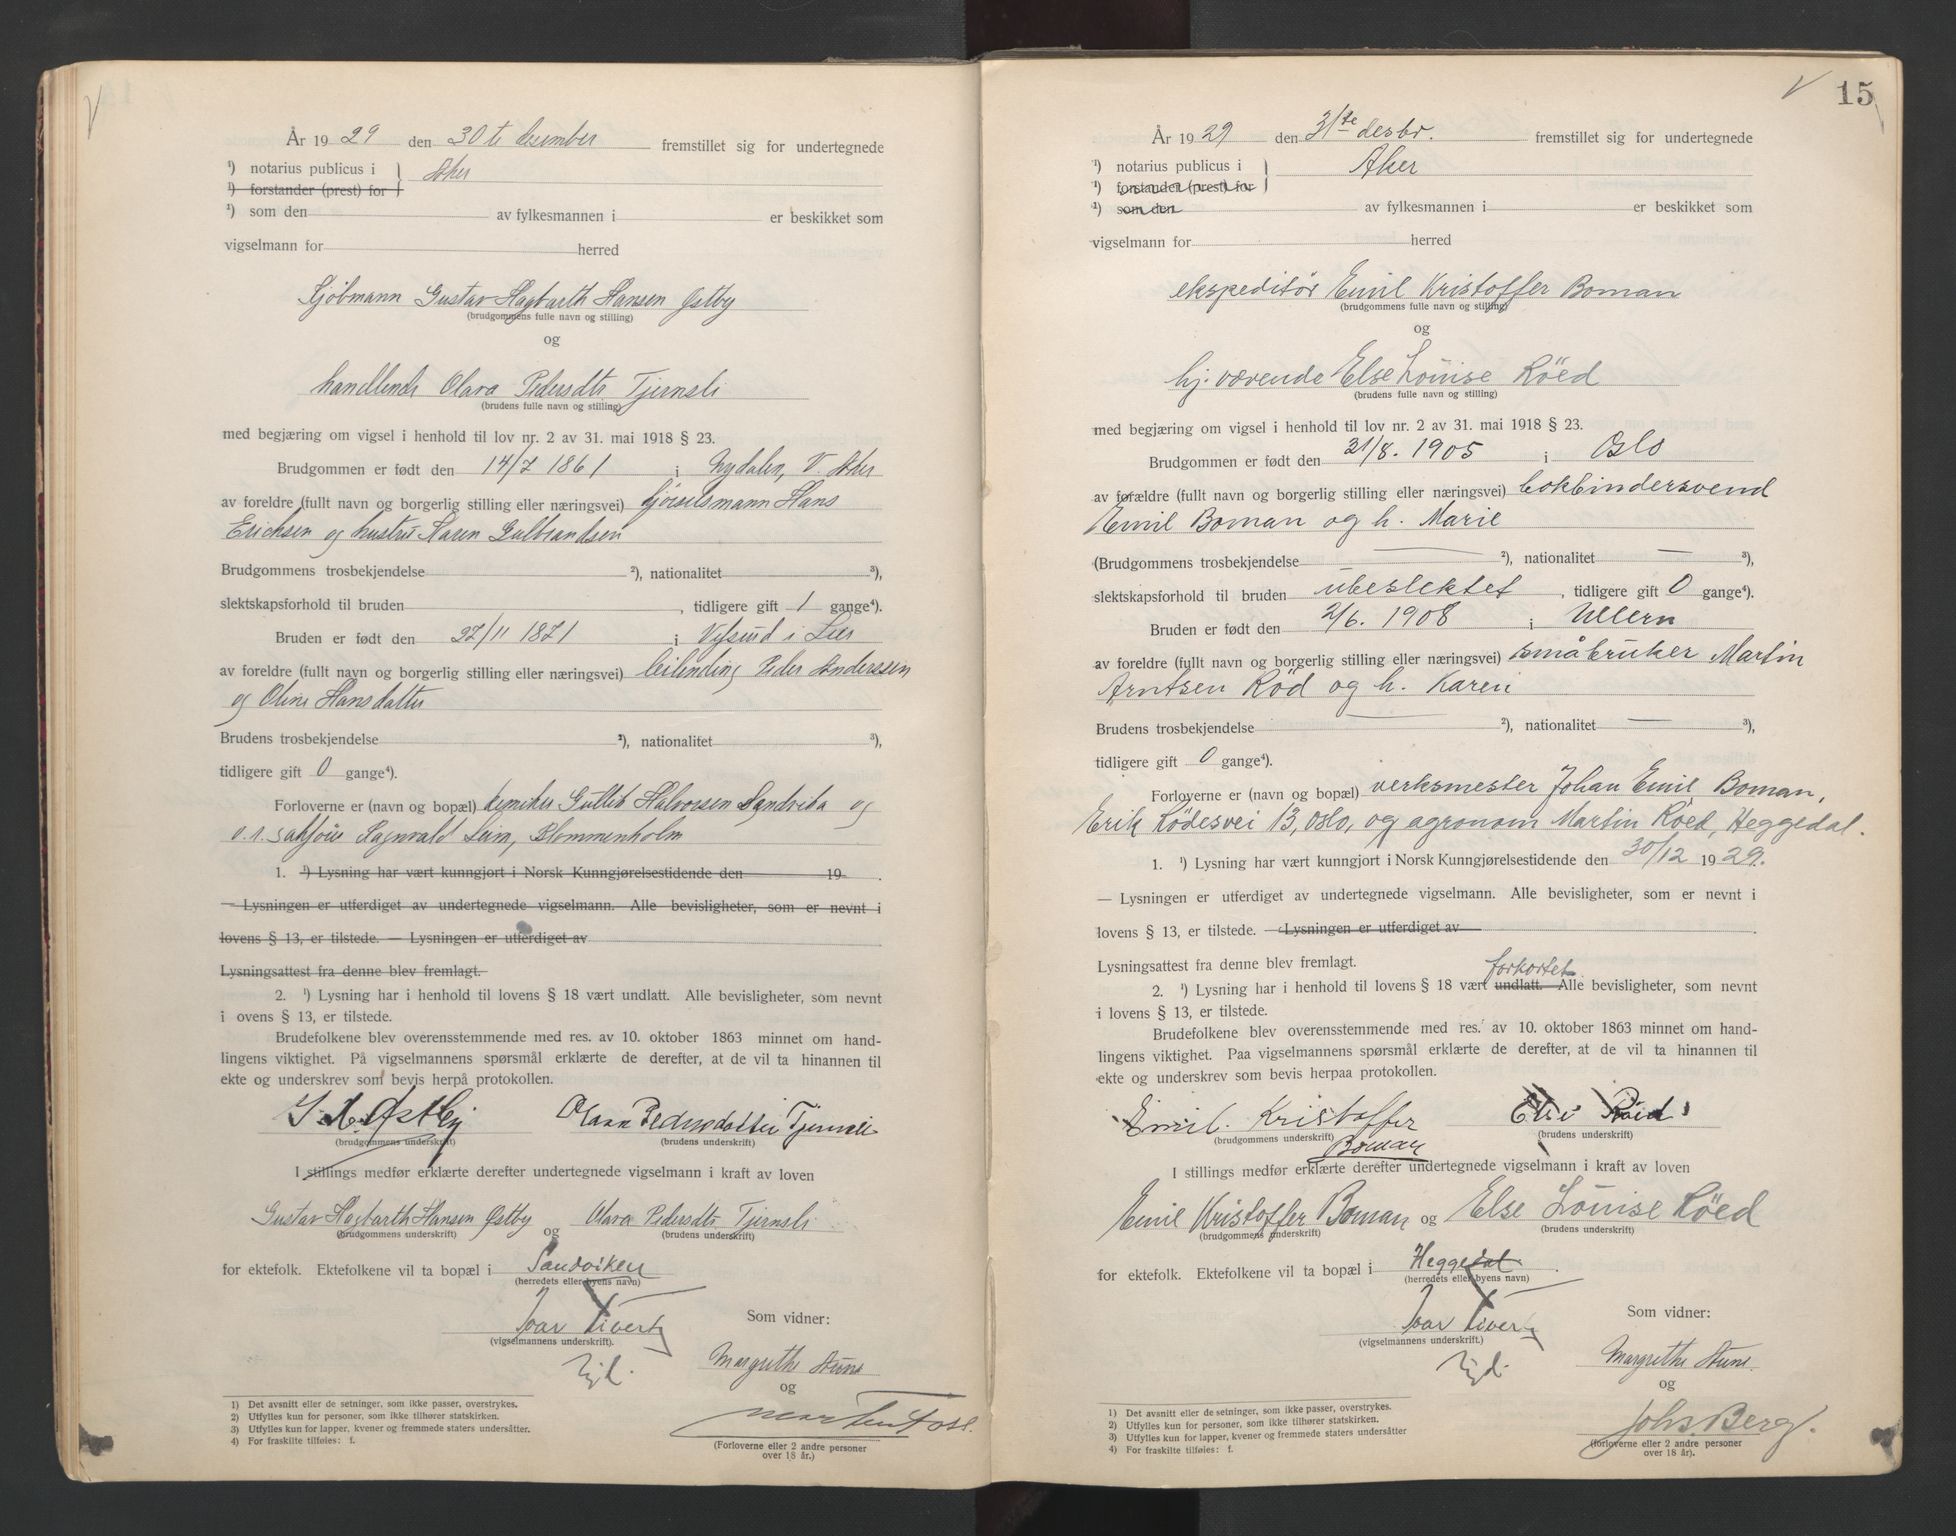 År 1929 den 30te desember fremstillet sig for undertegnede
¹) notarius publicus i } Aker
¹) forstander (prest) for
¹) som den av fylkesmannen i er beskikket som
vigselmann for herred
Sjömann Gustav Hagbarth Hansen Østby
(brudgommens fulle navn og stilling)
og
handlende Olava Pedersdtr Tjernsli
(brudens fulle navn og stilling)
med begjæring om vigsel i henhold til lov nr. 2 av 31. mai 1918 § 23.
Brudgommen er født den 14/7 1861 i Nydalen, V. Aker
av foreldre (fullt navn og borgerlig stilling eller næringsvei) Hans
Erichsen og hustru Karen Gulbrandsen
Brudgommens trosbekjendelse ²), nationalitet ³),
slektskapsforhold til bruden , tidligere gift 1 gange⁴).
Bruden er født den 27/11 1871 i i Lier
av foreldre (fullt navn og borgerlig stilling eller næringsvei) leilending Peder Anderssen
og Oline Hansdatter
Brudens trosbekjendelse ²), nationalitet ³),
tidligere gift 0 gange⁴).
Forloverne er (navn og bopæl) kemiker Gullik Halvorsen Sandvika og
o.r.sakfører Ragnvald Leim, Blommenholm
1. ¹) Lysning har vært kunngjort i Norsk Kunngjørelsestidende den 19 .
— Lysningen er utferdiget av undertegnede vigselmann. Alle bevisligheter, som er nevnt i
lovens § 13, er tilstede. — Lysningen er utferdiget av
Lysningsattest fra denne blev fremlagt.
2. ¹) Lysning har i henhold til lovens § 18 vært undlatt. Alle bevisligheter, som nevnt
i ovens § 13, er tilstede.
Brudefolkene blev overensstemmende med res. av 10. oktober 1863 minnet om hand-
lingens viktighet. På vigselmannens spørsmål erklærte de derefter, at de vil ta hinannen til
ekte og underskrev som bevis herpå protokollen.
G. H. Østby Olava Pedersdatter Tjernsli
(brudgommens underskrift) (brudens underskrift)
I stillings medfør erklærte derefter undertegnede vigselmann i kraft av loven
Gustav Hagbarth Hansen Østby og Olava Pedersdtr Tjernsli
(brudgommens underskrift) (brudens underskrift)
for ektefolk. Ektefolkene vil ta bopæl i Sandviken
(herredets eller byens navn)
Ivar Som vidner:
(vigselmannens underskrift).
Margrethe
og
(Forloverne eller 2 andre personer
over 18 år.)
1) Det avsnitt eller de setninger, som ikke passer, overstrykes.
2) Utfylles kun for personer, som ikke tilhører statskirken.
3) Utfylles kun for lapper, kvener og fremmede staters undersåtter.
4) For fraskilte tilføies: f.
15
År 1929 den 31te desbr. fremstillet sig for undertegnede
¹) notarius publicus i } Aker
¹) forstander (prest) for
¹) som den av fylkesmannen i er beskikket som
vigselmann for herred
ekspeditör Emil Kristoffer Boman
(brudgommens fulle navn og stilling)
og
hj.værende Else Louise Röed
(brudens fulle navn og stilling)
med begjæring om vigsel i henhold til lov nr. 2 av 31. mai 1918 § 23.
Brudgommen er født den 21/8. 1905 i Oslo
av forældre (fullt navn og borgerlig stilling eller næringsvei) bokbindersvend
Emil Boman og h. Marie
(Brudgommens trosbekjendelse — ²), nationalitet — ³),
slektskapsforhold til bruden ubeslektet , tidligere gift 0 gange⁴).
Bruden er født den 2/6. 1908 i Ullern
av foreldre (fullt navn og borgerlig stilling eller næringsvei) småbruker Martin
Arntsen Röd og h. Karen
Brudens trosbekjendelse — ²), nationalitet — ³),
tidligere gift 0 gange⁴).
Forloverne er (navn og bopæl) verksmester Johan Emil Boman,
Erik Rödesvei 13, Oslo, og agronom Martin Röed, Heggedal.
1. ¹) Lysning har vært kunngjort i Norsk Kunngjørelsestidende den 30/12 1929.
— Lysningen er utferdiget av undertegnede vigselmann. Alle bevisligheter, som er nevnt i
lovens § 13, er tilstede. — Lysningen er utferdiget av
Lysningsattest fra denne blev fremlagt.
forkortet
2. ¹) Lysning har i henhold til lovens § 18 vært undlatt. Alle bevisligheter, som nevnt
i lovens § 13, er tilstede.
Brudefolkene blev overensstemmende med res. av 10. oktober 1863 minnet om hand-
lingens viktighet. Paa vigselmannens spørsmål erklærte de derefter, at de vil ta hinannen til
ekte og underskrev som bevis herpaa protokollen.
Emil. Kristoffer Boman Else Röed
(brudgommens underskrift) (brudens underskrift)
I stillings medfør erklærte derefter undertegnede vigselmann i kraft av loven
Emil Kristoffer Boman og Else Louise Röed
(brudgommens underskrift) (brudens underskrift)
for ektefolk. Ektefolkene vil ta bopæl i Heggedal .
(herredets eller byens navn)
Ivar Som vidner:
(vigselmannens underskrift.)
Margrethe
og
Johs. Berg.
(forloverne eller 2 andre personer
over 18 år).
1) Det avsnitt eller de setninger, som ikke passer, overstrykes.
2) Utfylles kun for personer, som ikke tilhører statskirken.
3) Utfylles kun for lapper, kvener og fremmede staters undersåtter
4) For fraskilte tilføies: f.